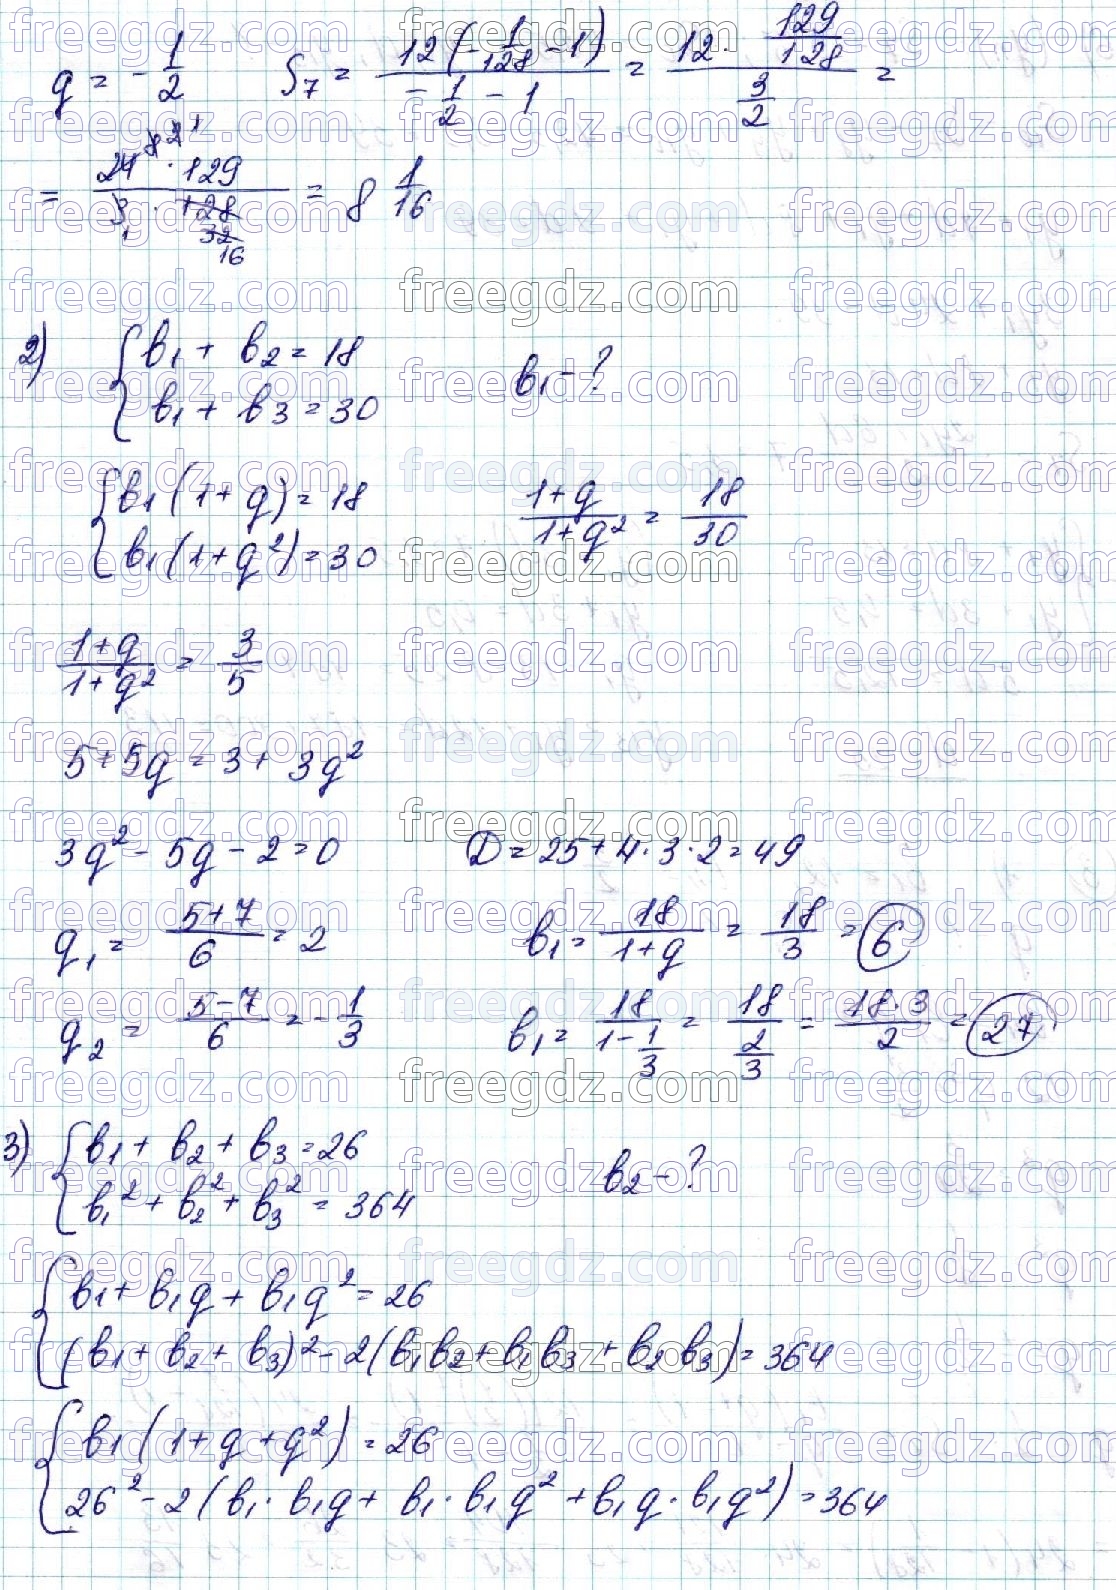 q = -1/2   S₇ = 12(-1/128 - 1) / (-1/2 - 1) = 12 · 129/128 / (3/2) =
= 24 · 129 / (3 · 128) = 8 1/16
2) { b₁ + b₂ = 18
b₁ + b₃ = 30   b₁ - ?
{ b₁(1+q) = 18
b₁(1+q²) = 30   (1+q)/(1+q²) = 18/30
(1+q)/(1+q²) = 3/5
5+5q = 3+3q²
3q² - 5q - 2 = 0   D = 25+4·3·2 = 49
q₁ = (5+7)/6 = 2   b₁ = 18/(1+q) = 18/3 = 6
q₂ = (5-7)/6 = -1/3   b₁ = 18/(1-1/3) = 18/(2/3) = 18·3/2 = 27
3) { b₁ + b₂ + b₃ = 26
b₁² + b₂² + b₃² = 364   b₂ - ?
{ b₁ + b₁q + b₁q² = 26
(b₁ + b₂ + b₃)² - 2(b₁b₂ + b₁b₃ + b₂b₃) = 364
{ b₁(1+q+q²) = 26
26² - 2(b₁·b₁q + b₁·b₁q² + b₁q·b₁q²) = 364
freegdz.com